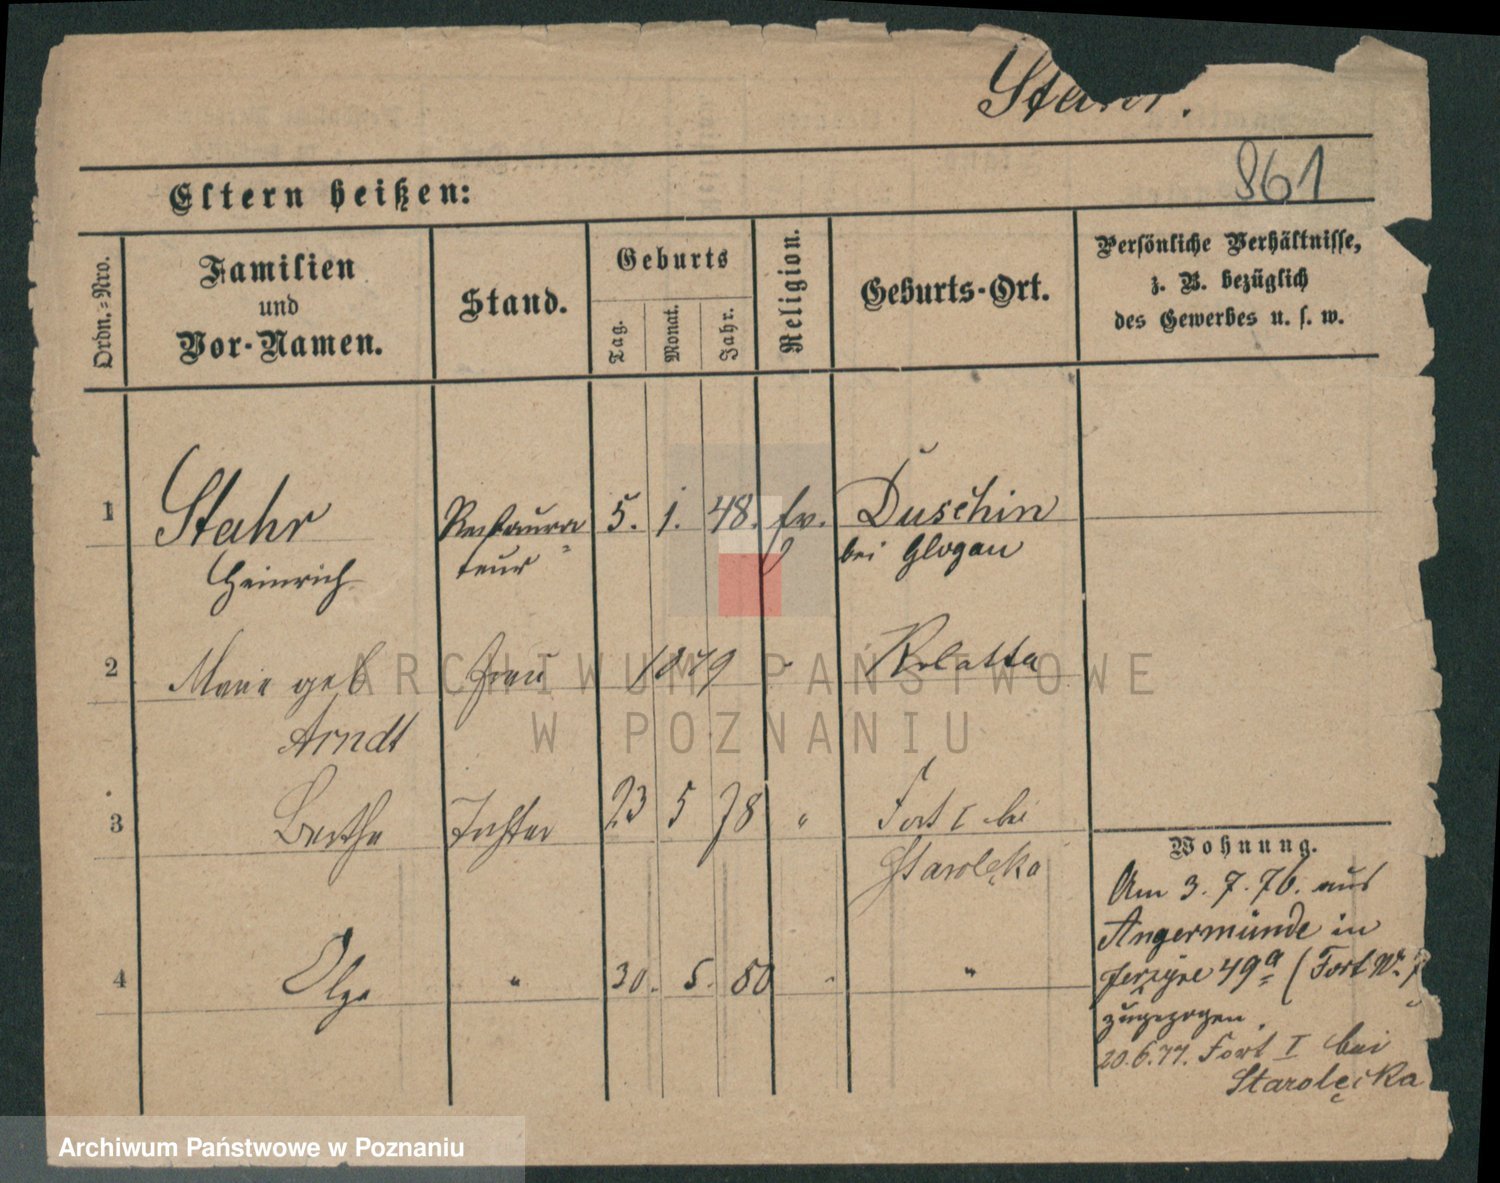 Stahr.
861
Eltern heißen:
Ordn.=Nro.
Familien
und
Vor-Namen.
Stand.
Geburts
Tag.
Monat.
Jahr.
Religion.
Geburts-Ort.
Persönliche Verhältnisse,
z. B. bezüglich
des Gewerbes u. s. w.
1 Stahr Restaura 5. 1. 48. ev. Duschin
Heinrich teur bei Glogau
2 Marie geb Frau 1849 " Kolatta
Arndt
3 Bertha Tochter 23 5 78 " Fort I bei
Starolęka
4 Olga " 30. 5. 80 " "
Wohnung.
Am 3. 7. 76. aus
Angermünde in
Jerzyce 49a (Fort Nr.
zugezogen.
20.6.77. Fort I bei
Starolęcka
ARCHIWUM PAŃSTWOWE
W POZNANIU
Archiwum Państwowe w Poznaniu